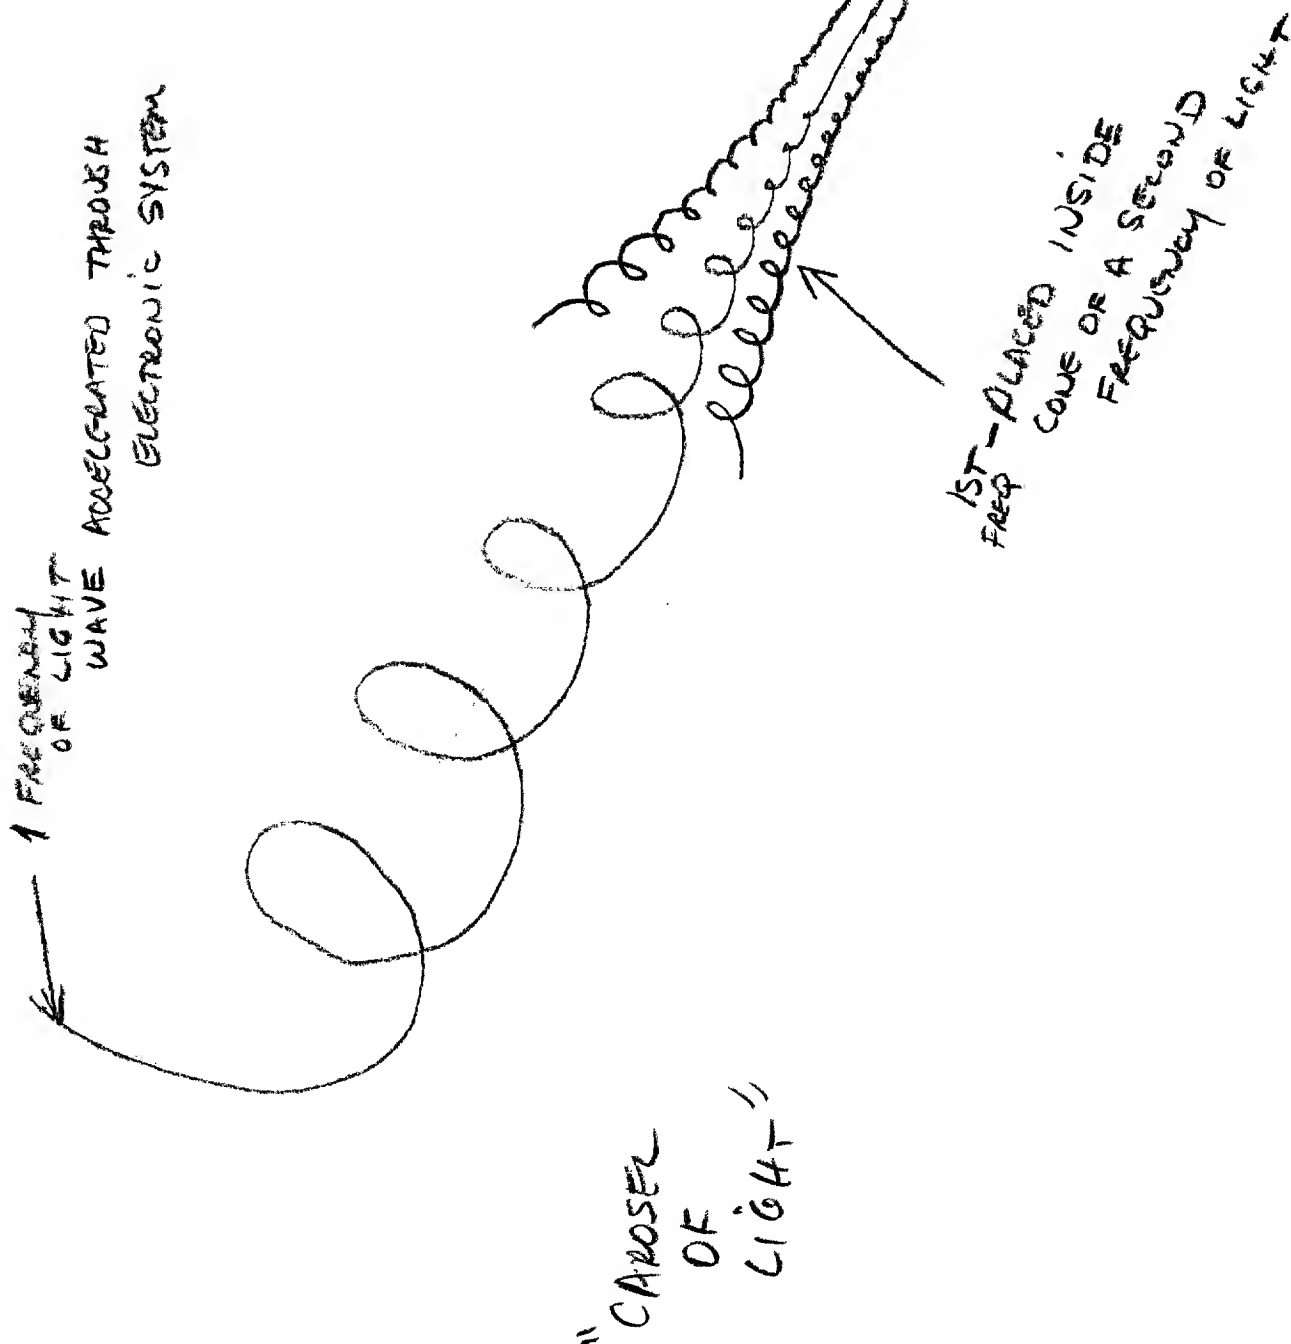 1 FREQUENCY
OF LIGHT
WAVE ACCELERATED THROUGH
ELECTRONIC SYSTEM
1ST - PLACED INSIDE
FREQ
CONE OF A SECOND
FREQUENCY OF LIGHT
" CAROSEL
OF
LIGHT"